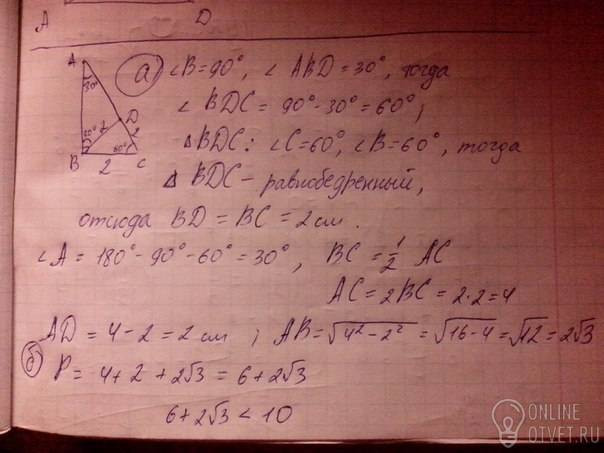 A D
а) ∠B=90°, ∠ ABD=30°, тогда
∠ BDC = 90°-30°=60°;
△BDC: ∠C=60°, ∠B=60°, тогда
△ BDC - равнобедренный,
отсюда BD = BC = 2 см.
∠A = 180°-90°-60°=30°, BC = 1/2 AC
AC = 2BC = 2·2=4
AD = 4-2=2 см ; AB=√4²-2² = √16-4=√12=2√3
б) P = 4+2+2√3 = 6+2√3
6+2√3 < 10
A
30°
D
2
2
60°
B
2
C
ONLINE
OTVET.RU